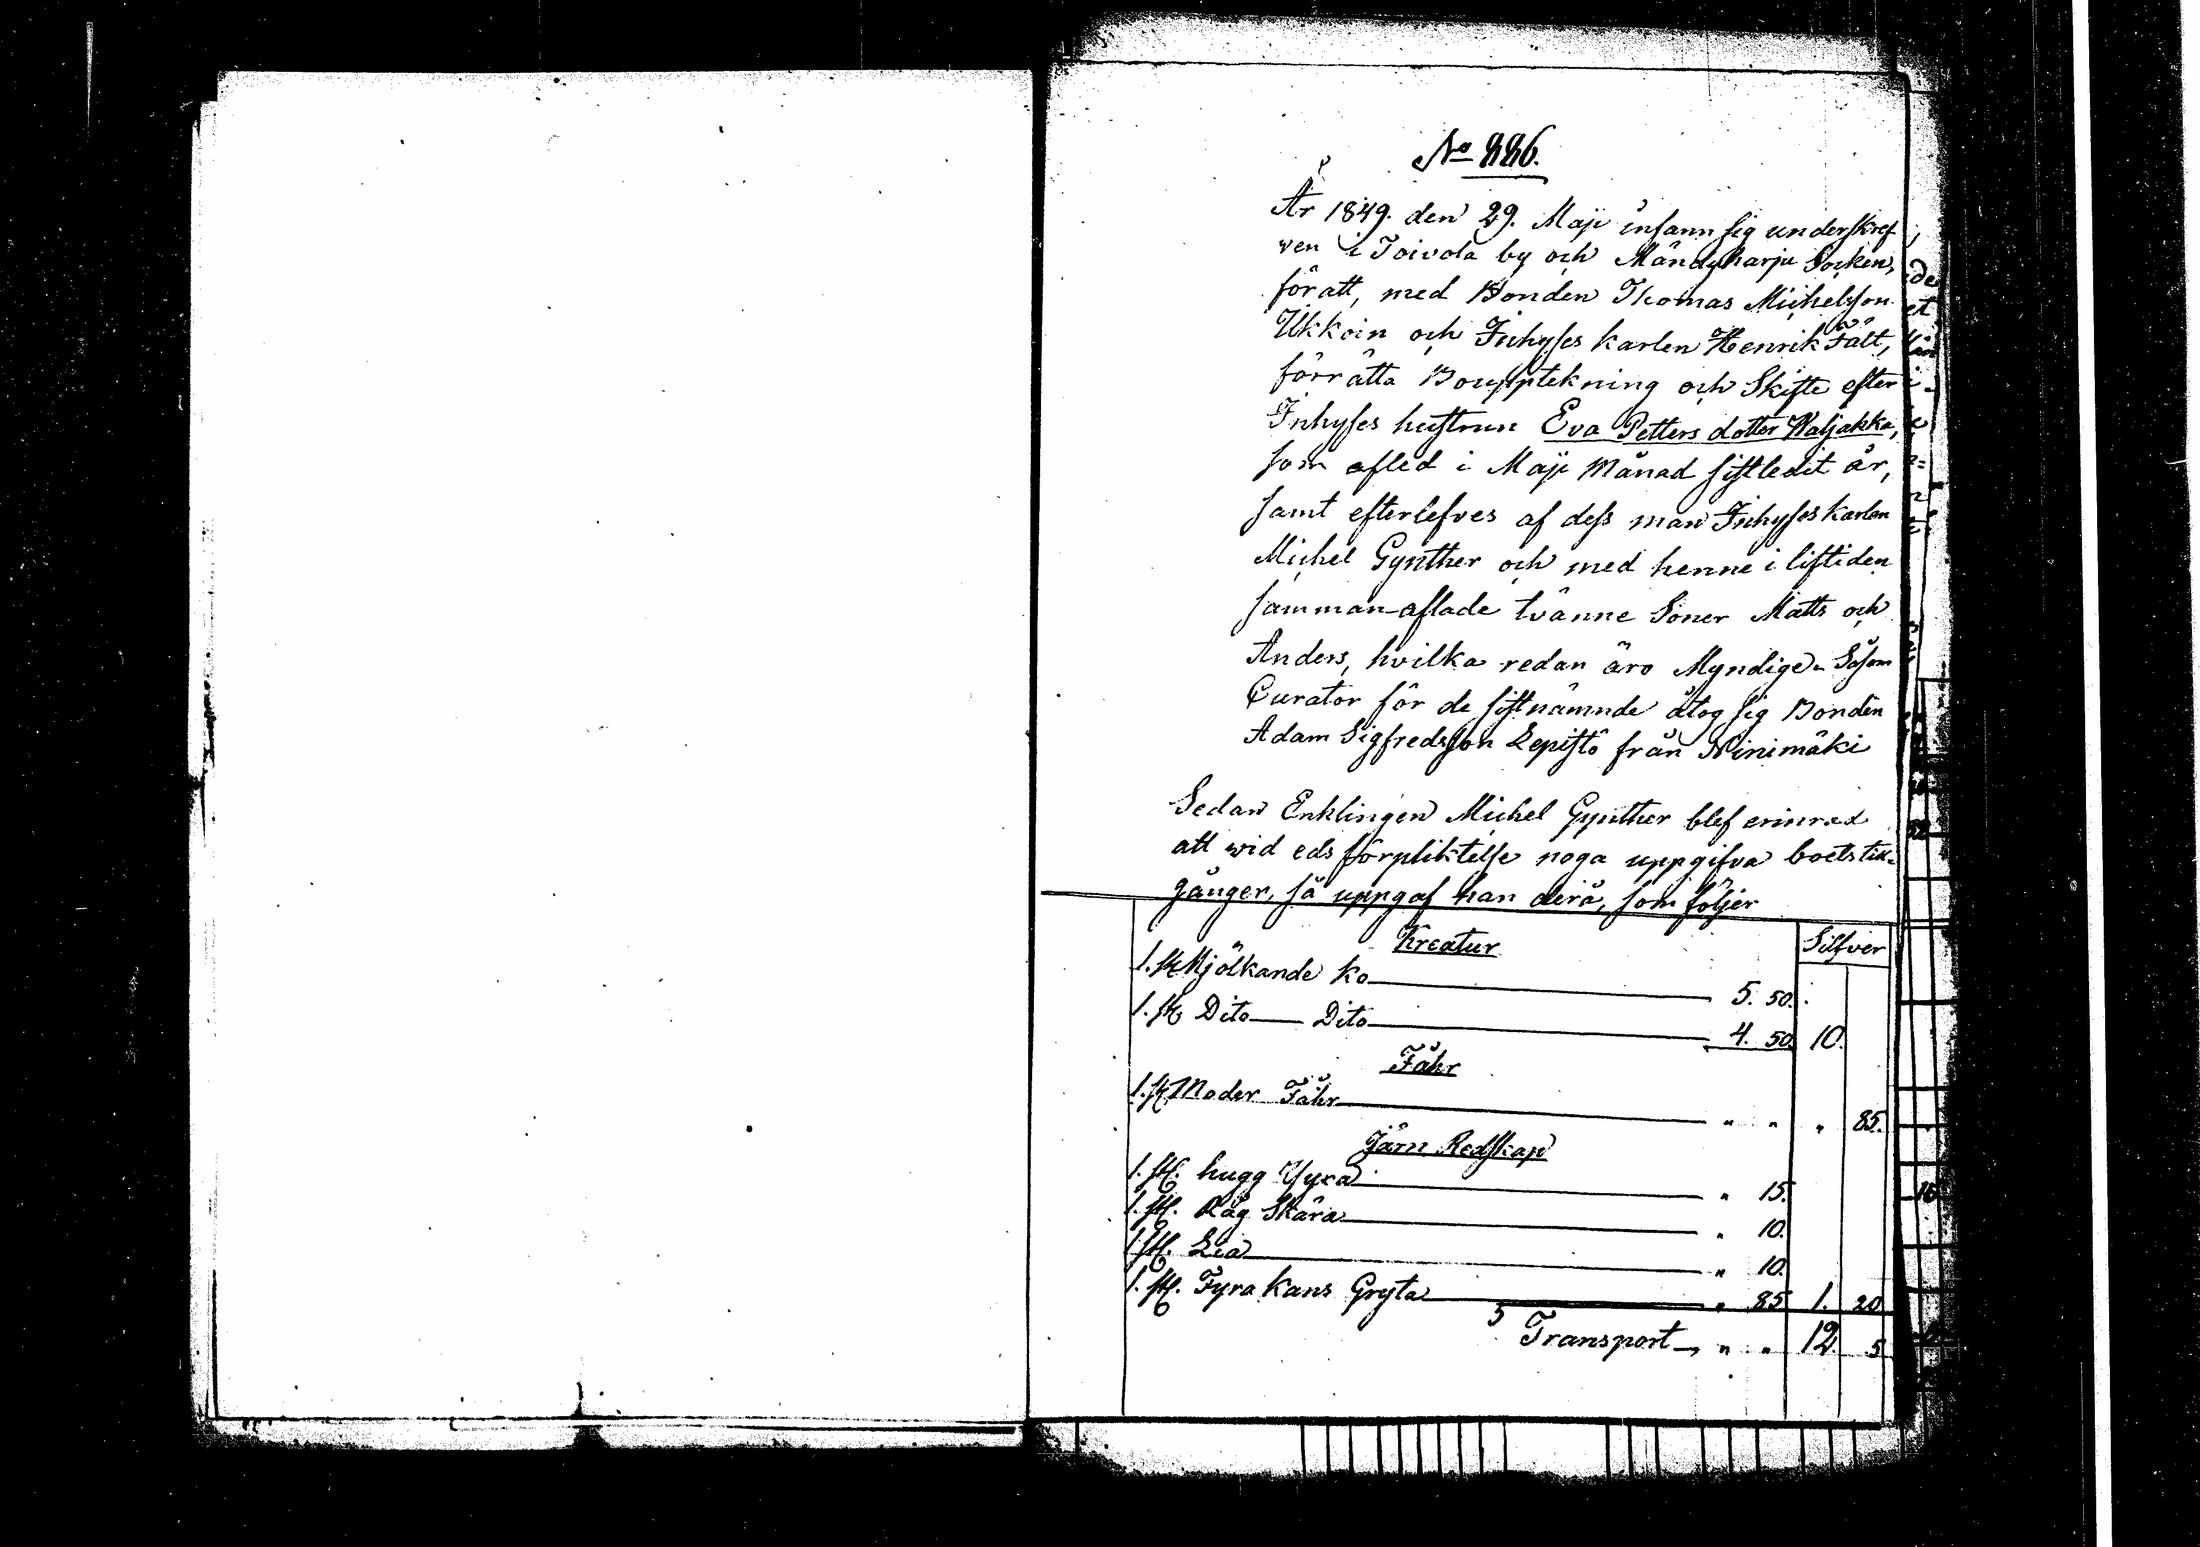 No 226.
År 1849. den 29. Maji infann sig underskref
ven i Toivola by och Mändyharju Socken,
för att, med Bonden Thomas Michelsson
Ukkoin och Inhyses karlen Henrik Fält,
förrätta Bouppteckning och Skifte efter
Inhyses hustrun Eva Petters dotter Waljakka,
som afled i Maji Månad sistledit år,
samt efterlefves af dess man Inhyses karlen
Michel Gynther och med henne i liftiden
samman-aflade tvänne Söner Matts och
Anders, hvilka redan äro Myndige. Såsom
Curator för de sistnämnde åtog sig Bonden
Adam Sigfredsson Lepistö från Ninimäki
Sedan Enklingen Michel Gynther blef erinrad
att wid eds förpliktelse noga uppgifva boets till-
gånger, så uppgaf han derå, som följer
Kreatur Silfver
1. st Mjölkande ko 5. 50.
1. st Dito Dito 4. 50. 10.
Fåhr
1. st Moder Fåhr " " " 85.
Järn Redskap
1. st. hugg Yxa " 15.
1. st. Råg Skära " 10.
1. st. Lia " 10.
1. st. Fyra kans Gryta " 85 1. 20
Transport " " 12. 5